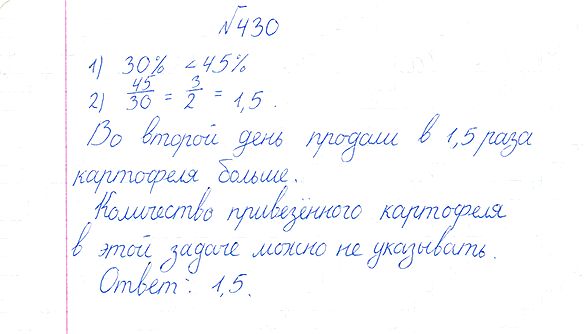 №430
1) 30% < 45%
2) 45/30 = 3/2 = 1,5.
Во второй день продали в 1,5 раза
картофеля больше.
Количество привезённого картофеля
в этой задаче можно не указывать.
Ответ: 1,5.